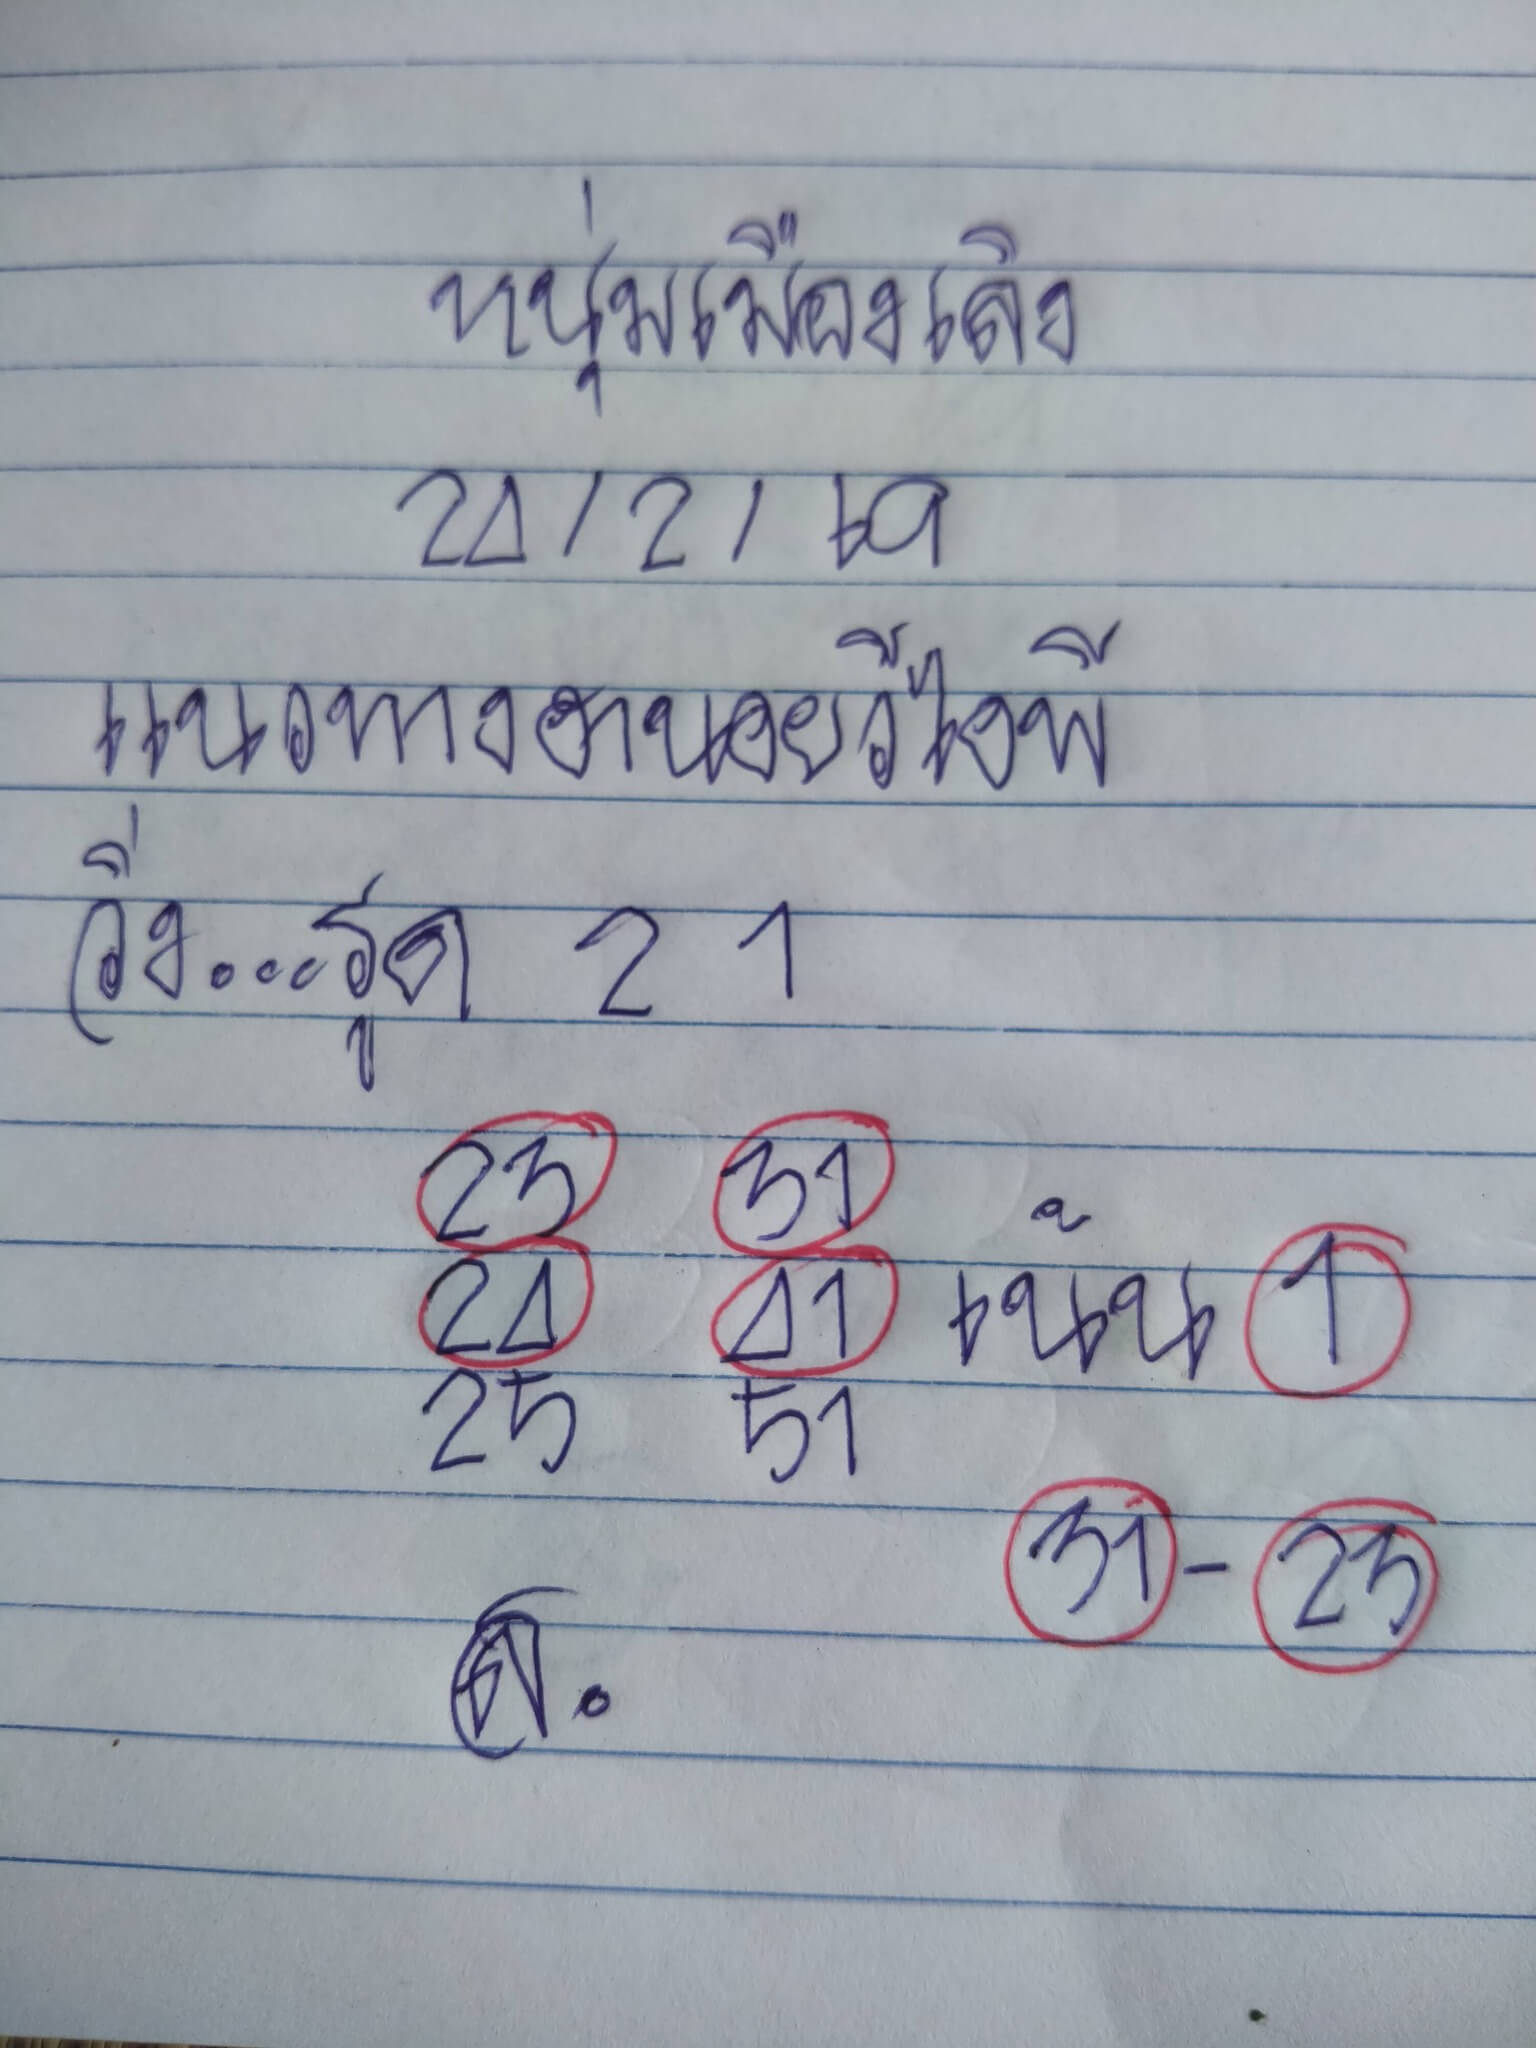 หนุ่มเมืองเลิง
24/2/69
แนวทางฮานอยวีไอพี
วิ่ง...รูด 2 1
23 31
24 41 เน้น 1
25 51
31-23